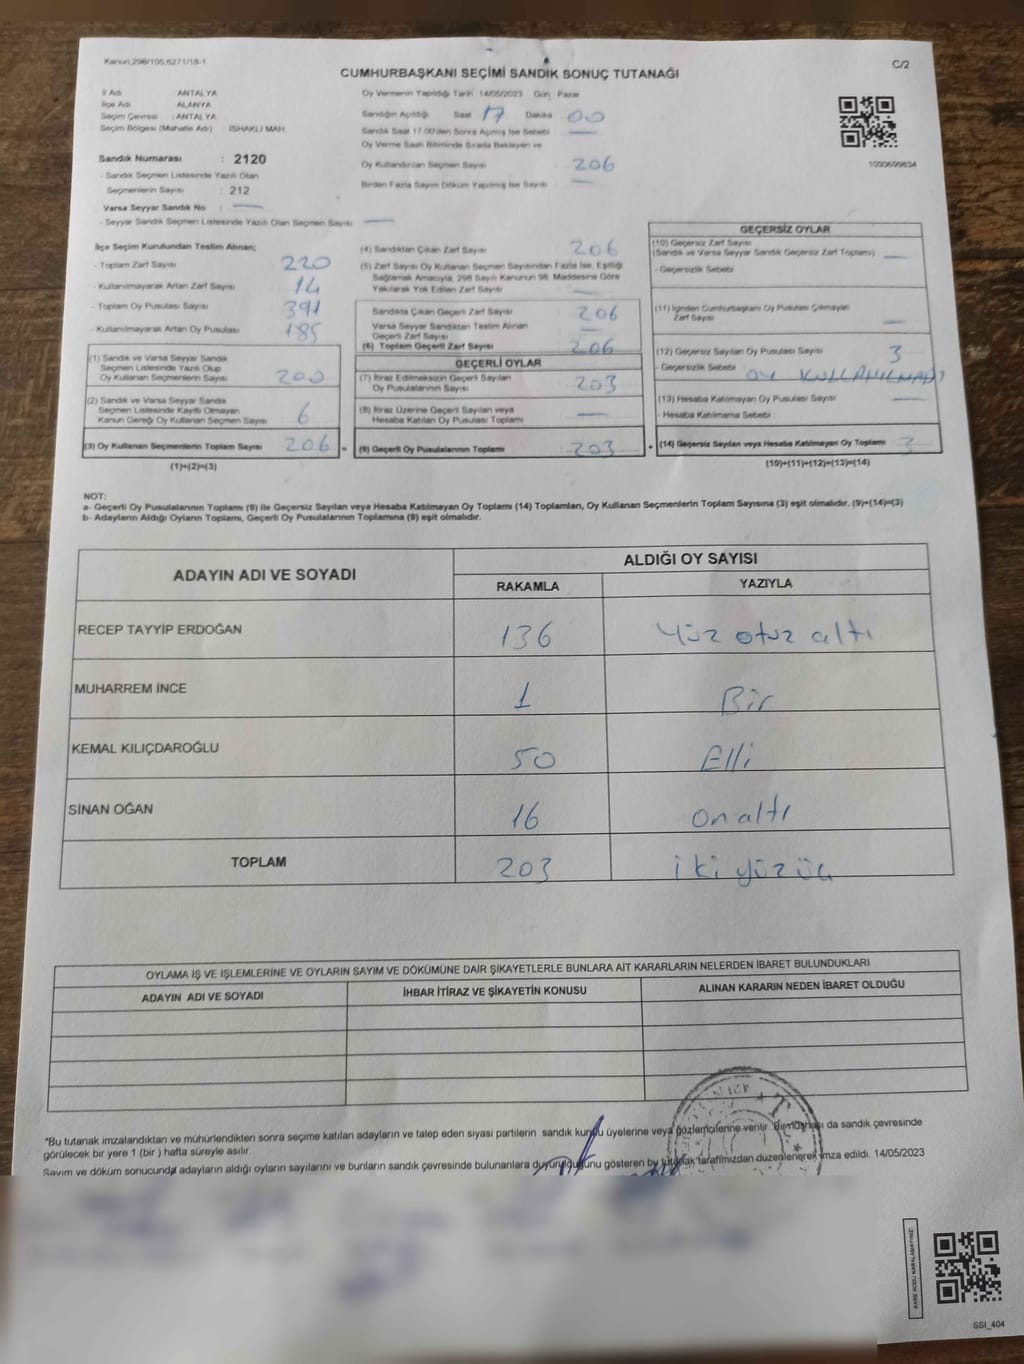 Kanun,298/105,6271/18-1
C/2
CUMHURBAŞKANI SEÇİMİ SANDIK SONUÇ TUTANAĞI
İl Adı ANTALYA
İlçe Adı ALANYA
Seçim Çevresi : ANTALYA
Seçim Bölgesi (Mahalle Adı) : İSHAKLI MAH.
Sandık Numarası : 2120
- Sandık Seçmen Listesinde Yazılı Olan
Seçmenlerin Sayısı : 212
Varsa Seyyar Sandık No : —
- Seyyar Sandık Seçmen Listesinde Yazılı Olan Seçmen Sayısı —
Oy Vermenin Yapıldığı Tarih 14/05/2023 Gün Pazar
Sandığın Açıldığı Saat 17 Dakika 00
Sandık Saat 17.00'den Sonra Açılmış İse Sebebi —
Oy Verme Saati Bitiminde Sırada Bekleyen ve
Oy Kullandırılan Seçmen Sayısı 206
Birden Fazla Sayım Döküm Yapılmış İse Sayısı —
1093699834
İlçe Seçim Kurulundan Teslim Alınan;
- Toplam Zarf Sayısı 220
- Kullanılmayarak Artan Zarf Sayısı 14
- Toplam Oy Pusulası Sayısı 391
- Kullanılmayarak Artan Oy Pusulası 185
(1) Sandık ve Varsa Seyyar Sandık
Seçmen Listesinde Yazılı Olup
Oy Kullanan Seçmenlerin Sayısı 200
(2) Sandık ve Varsa Seyyar Sandık
Seçmen Listesinde Kayıtlı Olmayan
Kanun Gereği Oy Kullanan Seçmen Sayısı 6
(3) Oy Kullanan Seçmenlerin Toplam Sayısı 206 =
(1)+(2)=(3)
(4) Sandıktan Çıkan Zarf Sayısı 206
(5) Zarf Sayısı Oy Kullanan Seçmen Sayısından Fazla İse, Eşitliği
Sağlamak Amacıyla, 298 Sayılı Kanunun 98. Maddesine Göre
Yakılarak Yok Edilen Zarf Sayısı —
Sandıkta Çıkan Geçerli Zarf Sayısı 206
Varsa Seyyar Sandıktan Teslim Alınan
Geçerli Zarf Sayısı —
(6) Toplam Geçerli Zarf Sayısı 206
GEÇERLİ OYLAR
(7) İtiraz Edilmeksizin Geçerli Sayılan
Oy Pusulalarının Sayısı 203
(8) İtiraz Üzerine Geçerli Sayılan veya
Hesaba Katılan Oy Pusulası Toplamı —
(9) Geçerli Oy Pusulalarının Toplamı : 203 +
GEÇERSİZ OYLAR
(10) Geçersiz Zarf Sayısı
(Sandık ve Varsa Seyyar Sandık Geçersiz Zarf Toplamı) —
- Geçersizlik Sebebi
(11) İçinden Cumhurbaşkanı Oy Pusulası Çıkmayan
Zarf Sayısı —
(12) Geçersiz Sayılan Oy Pusulası Sayısı 3
- Geçersizlik Sebebi OY KULLANILMADI
(13) Hesaba Katılmayan Oy Pusulası Sayısı —
- Hesaba Katılmama Sebebi :
(14) Geçersiz Sayılan veya Hesaba Katılmayan Oy Toplamı 3
(10)+(11)+(12)+(13)=(14)
NOT:
a- Geçerli Oy Pusulalarının Toplamı (9) ile Geçersiz Sayılan veya Hesaba Katılmayan Oy Toplamı (14) Toplamları, Oy Kullanan Seçmenlerin Toplam Sayısına (3) eşit olmalıdır. (9)+(14)=(3)
b- Adayların Aldığı Oyların Toplamı, Geçerli Oy Pusulalarının Toplamına (9) eşit olmalıdır.
ADAYIN ADI VE SOYADI
ALDIĞI OY SAYISI
RAKAMLA YAZIYLA
RECEP TAYYİP ERDOĞAN 136 Yüz otuz altı
MUHARREM İNCE 1 Bir
KEMAL KILIÇDAROĞLU 50 Elli
SİNAN OĞAN 16 on altı
TOPLAM 203 iki yüz üç
OYLAMA İŞ VE İŞLEMLERİNE VE OYLARIN SAYIM VE DÖKÜMÜNE DAİR ŞİKAYETLERLE BUNLARA AİT KARARLARIN NELERDEN İBARET BULUNDUKLARI
ADAYIN ADI VE SOYADI İHBAR İTİRAZ VE ŞİKAYETİN KONUSU ALINAN KARARIN NEDEN İBARET OLDUĞU
*Bu tutanak imzalandıktan ve mühürlendikten sonra seçime katılan adayların ve talep eden siyasi partilerin sandık kurulu üyelerine veya gözlemcilerine verilir. Bir nüshası da sandık çevresinde
görülecek bir yere 1 (bir ) hafta süreyle asılır.
Sayım ve döküm sonucunda adayların aldığı oyların sayılarını ve bunların sandık çevresinde bulunanlara duyurulduğunu gösteren bu tutanak tarafımızdan düzenlenerek imza edildi. 14/05/2023
KARE KODU KARALAMAYINIZ!
SSI_404